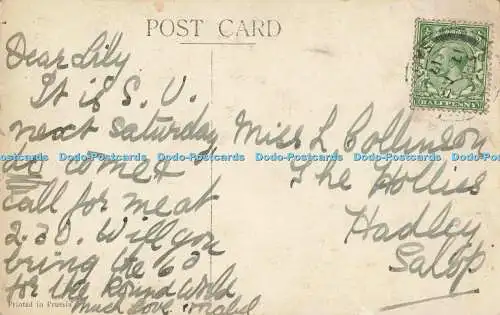 POST CARD
Dear Lily
It is S. U.
next Saturday
do come &
call for me at
2.30. Will you
bring the 6D
for the Round World
Much love Mabel
Miss L Collinson
The Hollies
Hadley
Salop
HALFPENNY
Printed in Prussia
Dodo-Postcards Dodo-Postcards Dodo-Postcards Dodo-Postcards Dodo-Postcards